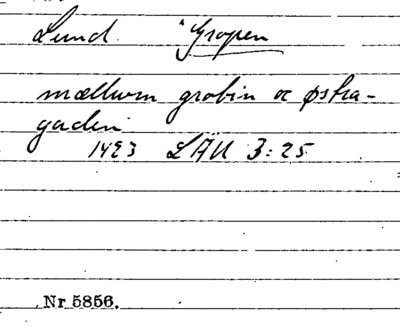 Lund. "Gropen
mællum grobin oc østra-
gaden
1423 LÄU 3:25
Nr 5856.